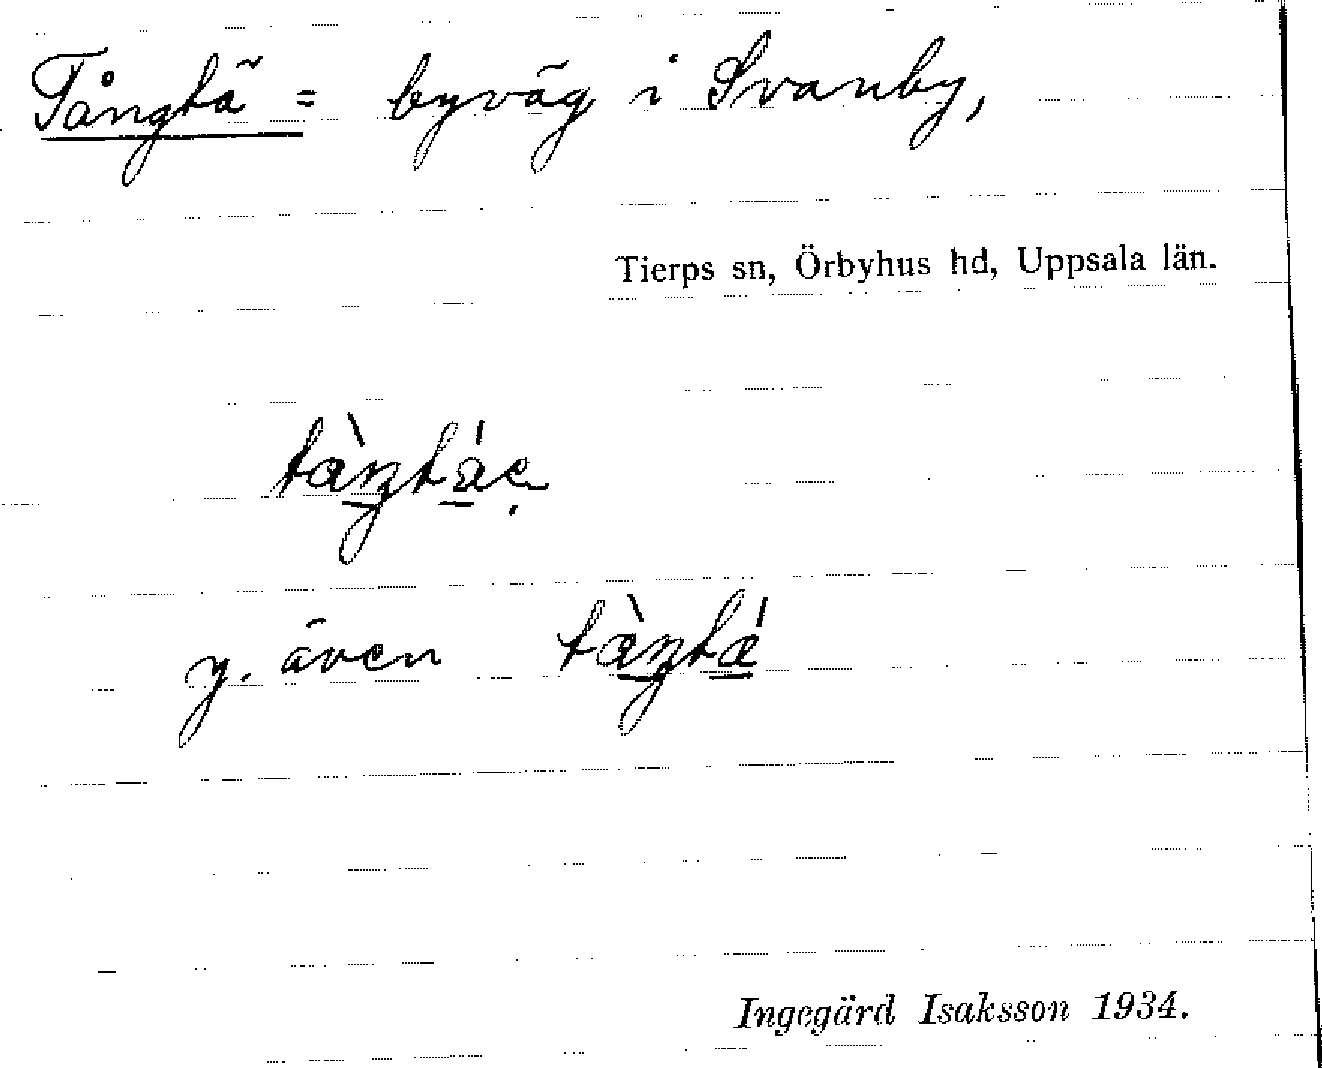 Tångtä = byväg i Svanby,
Tierps sn, Örbyhus hd, Uppsala län.
y. även
Ingegärd Isaksson 1934.